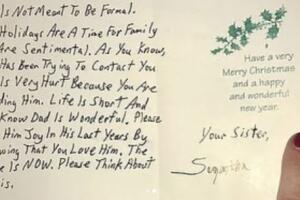 Is Not Meant To Be Formal.
Holidays Are A Time For Family
Are Sentimental. As You Know,
Has Been Trying To Contact You
Is Very Hurt Because You Are
ding Him. Life Is Short And
Know Dad Is Wonderful. Please
Him Joy In His Last Years By
wing That You Love Him. The
e Is NOW. Please Think About
is.
Have a very
Merry Christmas
and a happy
and wonderful
new year.
Your Sister,